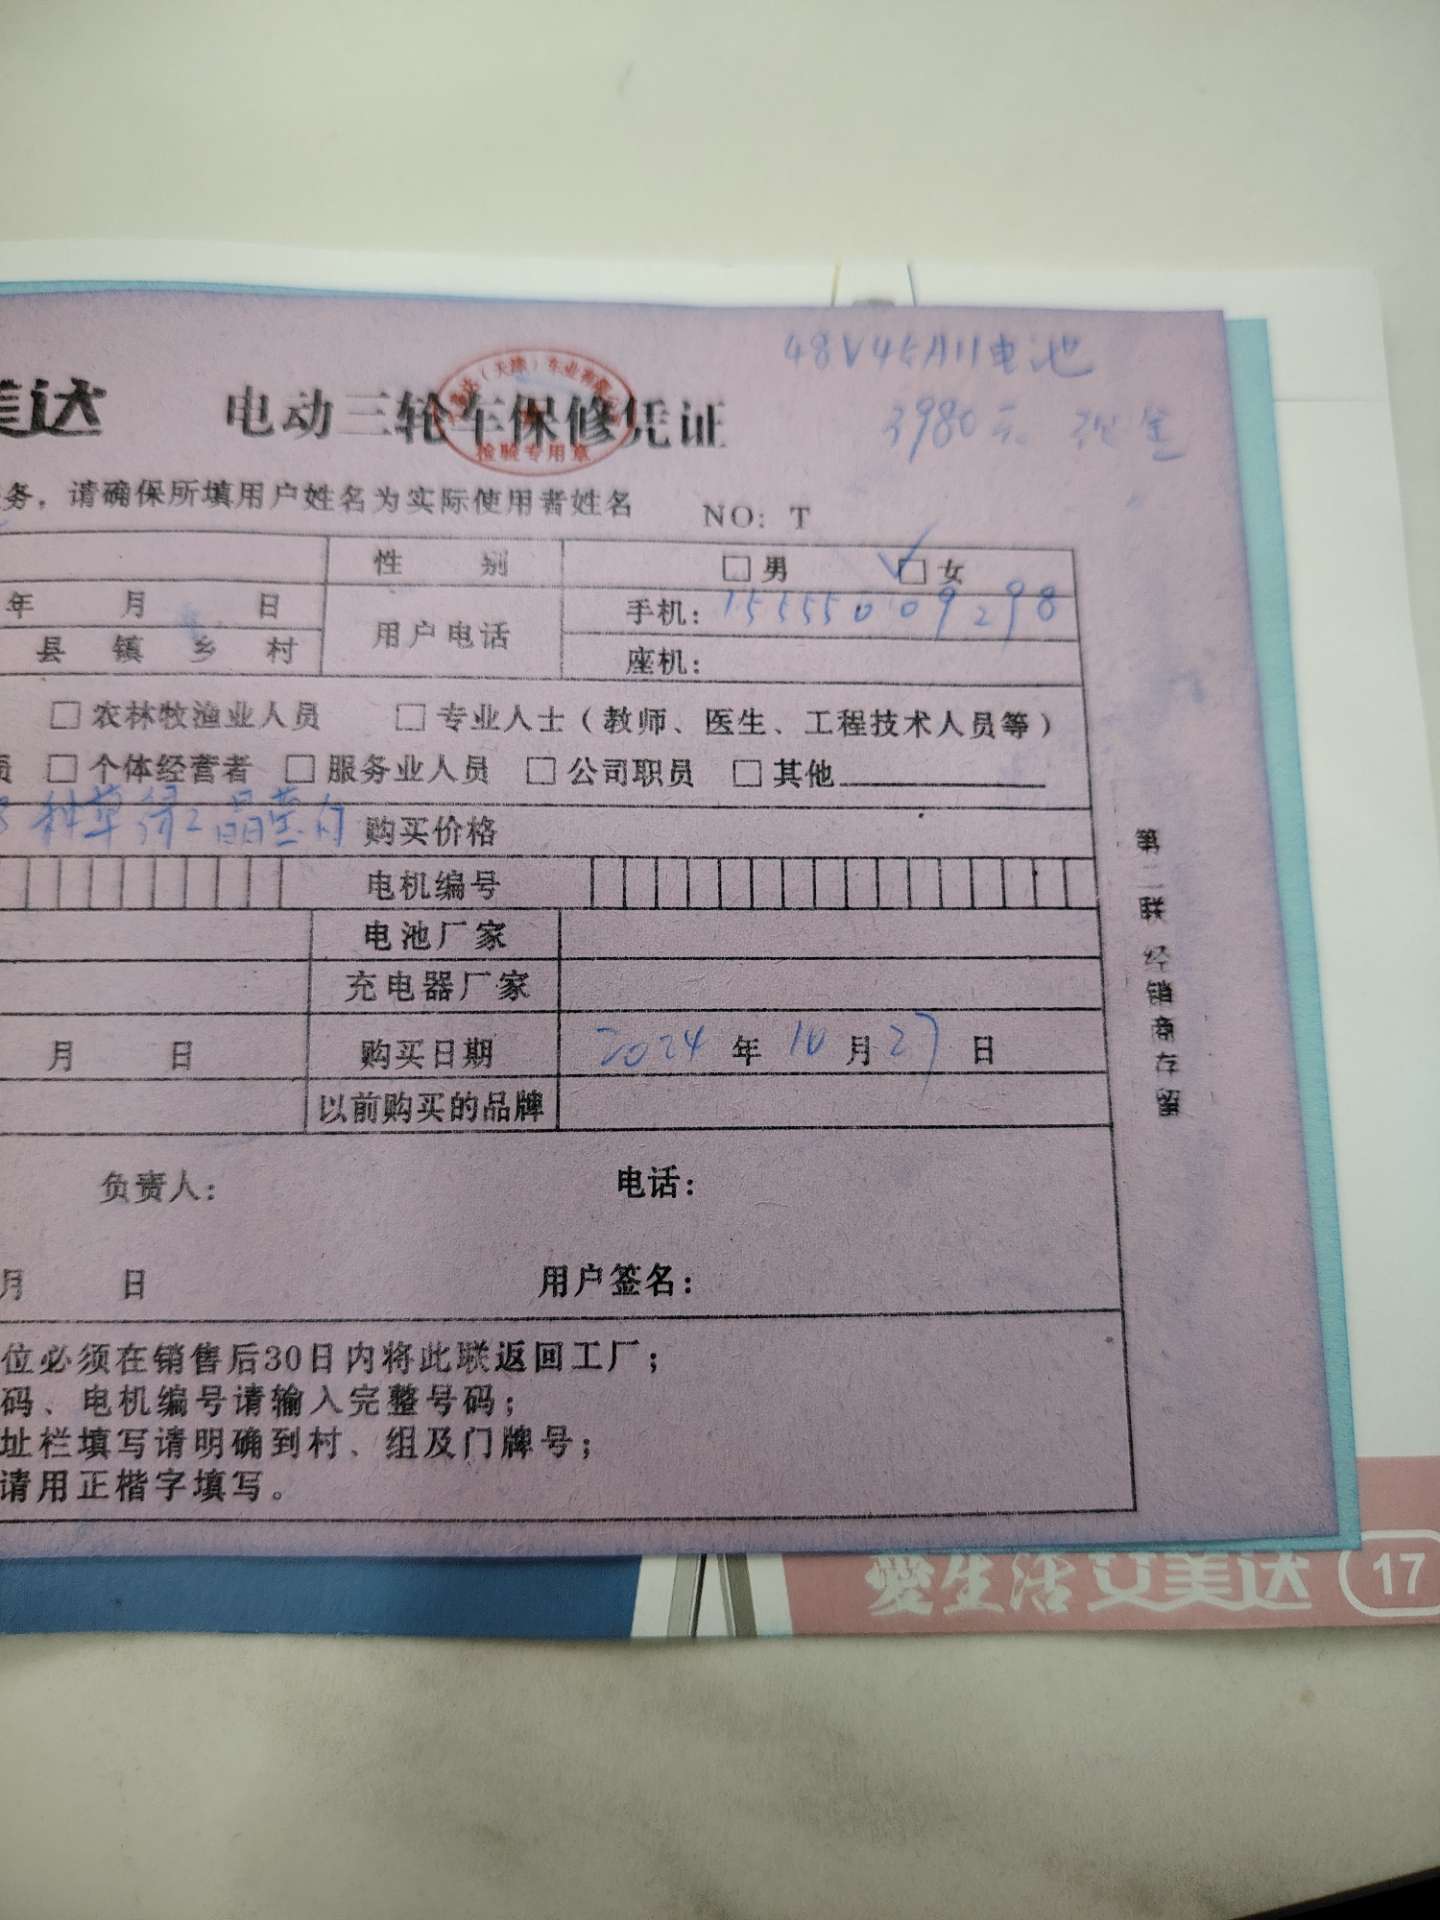 48V45AH电池
3980元 现金
美达 电动三轮车保修凭证
(天津)车业有限公司
检验专用章
务,请确保所填用户姓名为实际使用者姓名 NO: T
性 别 □男 ☑女
年 月 日 用户电话 手机: 15555009298
县 镇 乡 村 座机:
□农林牧渔业人员 □专业人士(教师、医生、工程技术人员等)
员 □个体经营者 □服务业人员 □公司职员 □其他
购买价格
电机编号
电池厂家
充电器厂家
月 日 购买日期 2024年10月27日
以前购买的品牌
负责人: 电话:
月 日 用户签名:
位必须在销售后30日内将此联返回工厂;
码、电机编号请输入完整号码;
址栏填写请明确到村、组及门牌号;
请用正楷字填写。
第二联 经销商存留
爱生活艾美达 17